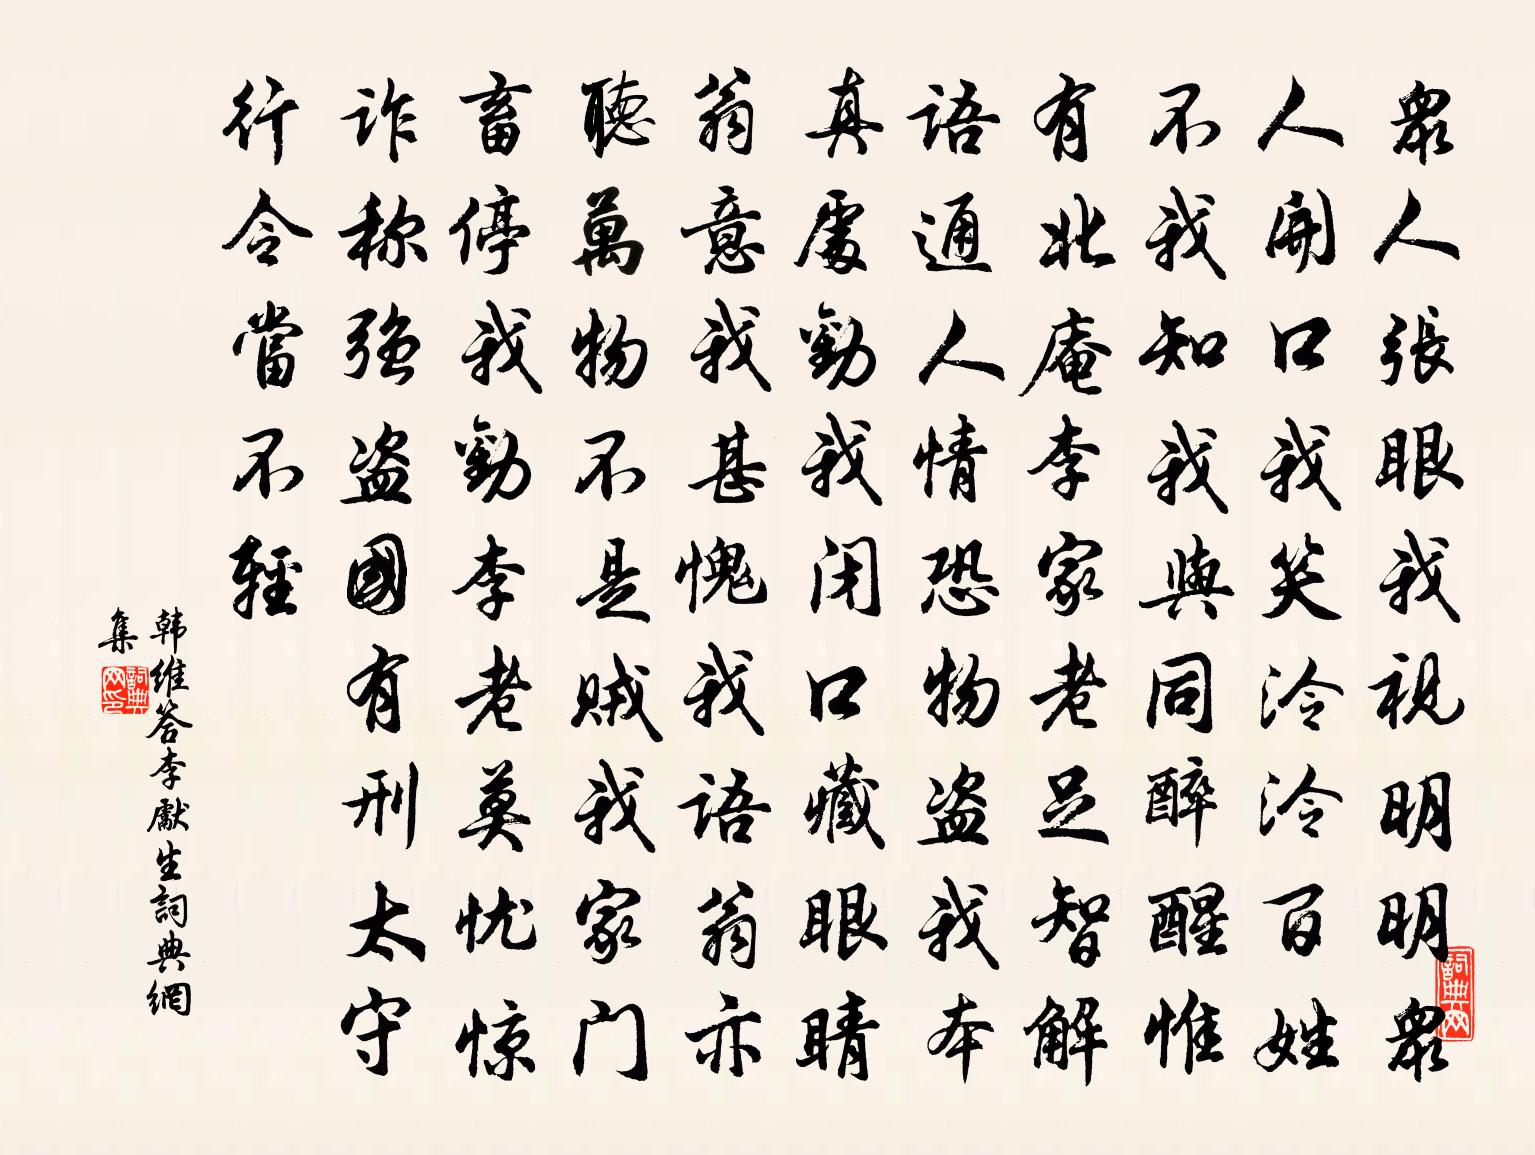 眾人張眼我視明明眾
人開口我笑泠泠百姓
不我知我與同醉醒惟
有北庵李家老足智解
語通人情恐物盜我本
真處勸我闭口藏眼睛
翁意我甚愧我語翁亦
聴萬物不是贼我家门
畜停我勸李老莫忧惊
诈称强盗國有刑太守
行令當不輕
韩维答李獻生詞典網
集
詞典网
詞典
网印